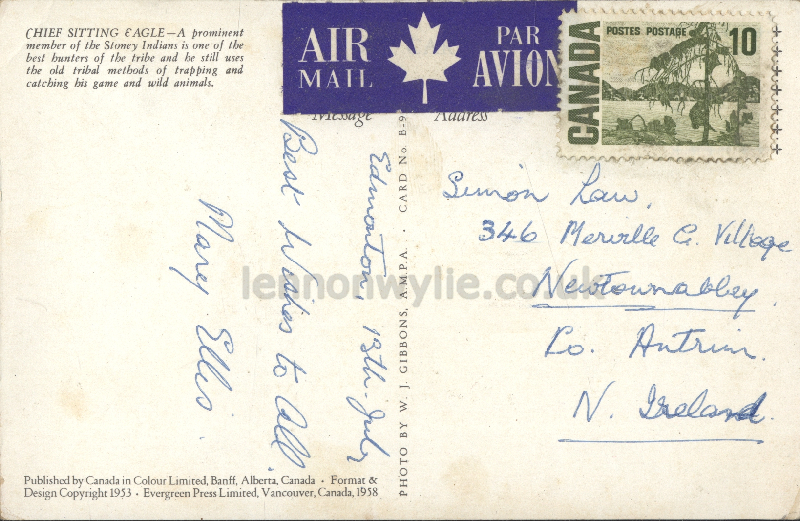 CHIEF SITTING EAGLE—A prominent
member of the Stoney Indians is one of the
best hunters of the tribe and he still uses
the old tribal methods of trapping and
catching his game and wild animals.
AIR
MAIL
PAR
AVION
CANADA
POSTES POSTAGE
10
Message
Address
Edmonton, 13th July
Best Wishes to All.
Mary Ellis.
CARD No. B-9
PHOTO BY W. J. GIBBONS, A.M.P.A. •
Simon Law,
346 Merville G. Village
Newtownabbey.
Co. Antrim.
N. Ireland.
lennonwylie.co.uk
Published by Canada in Colour Limited, Banff, Alberta, Canada • Format &
Design Copyright 1953 • Evergreen Press Limited, Vancouver, Canada, 1958